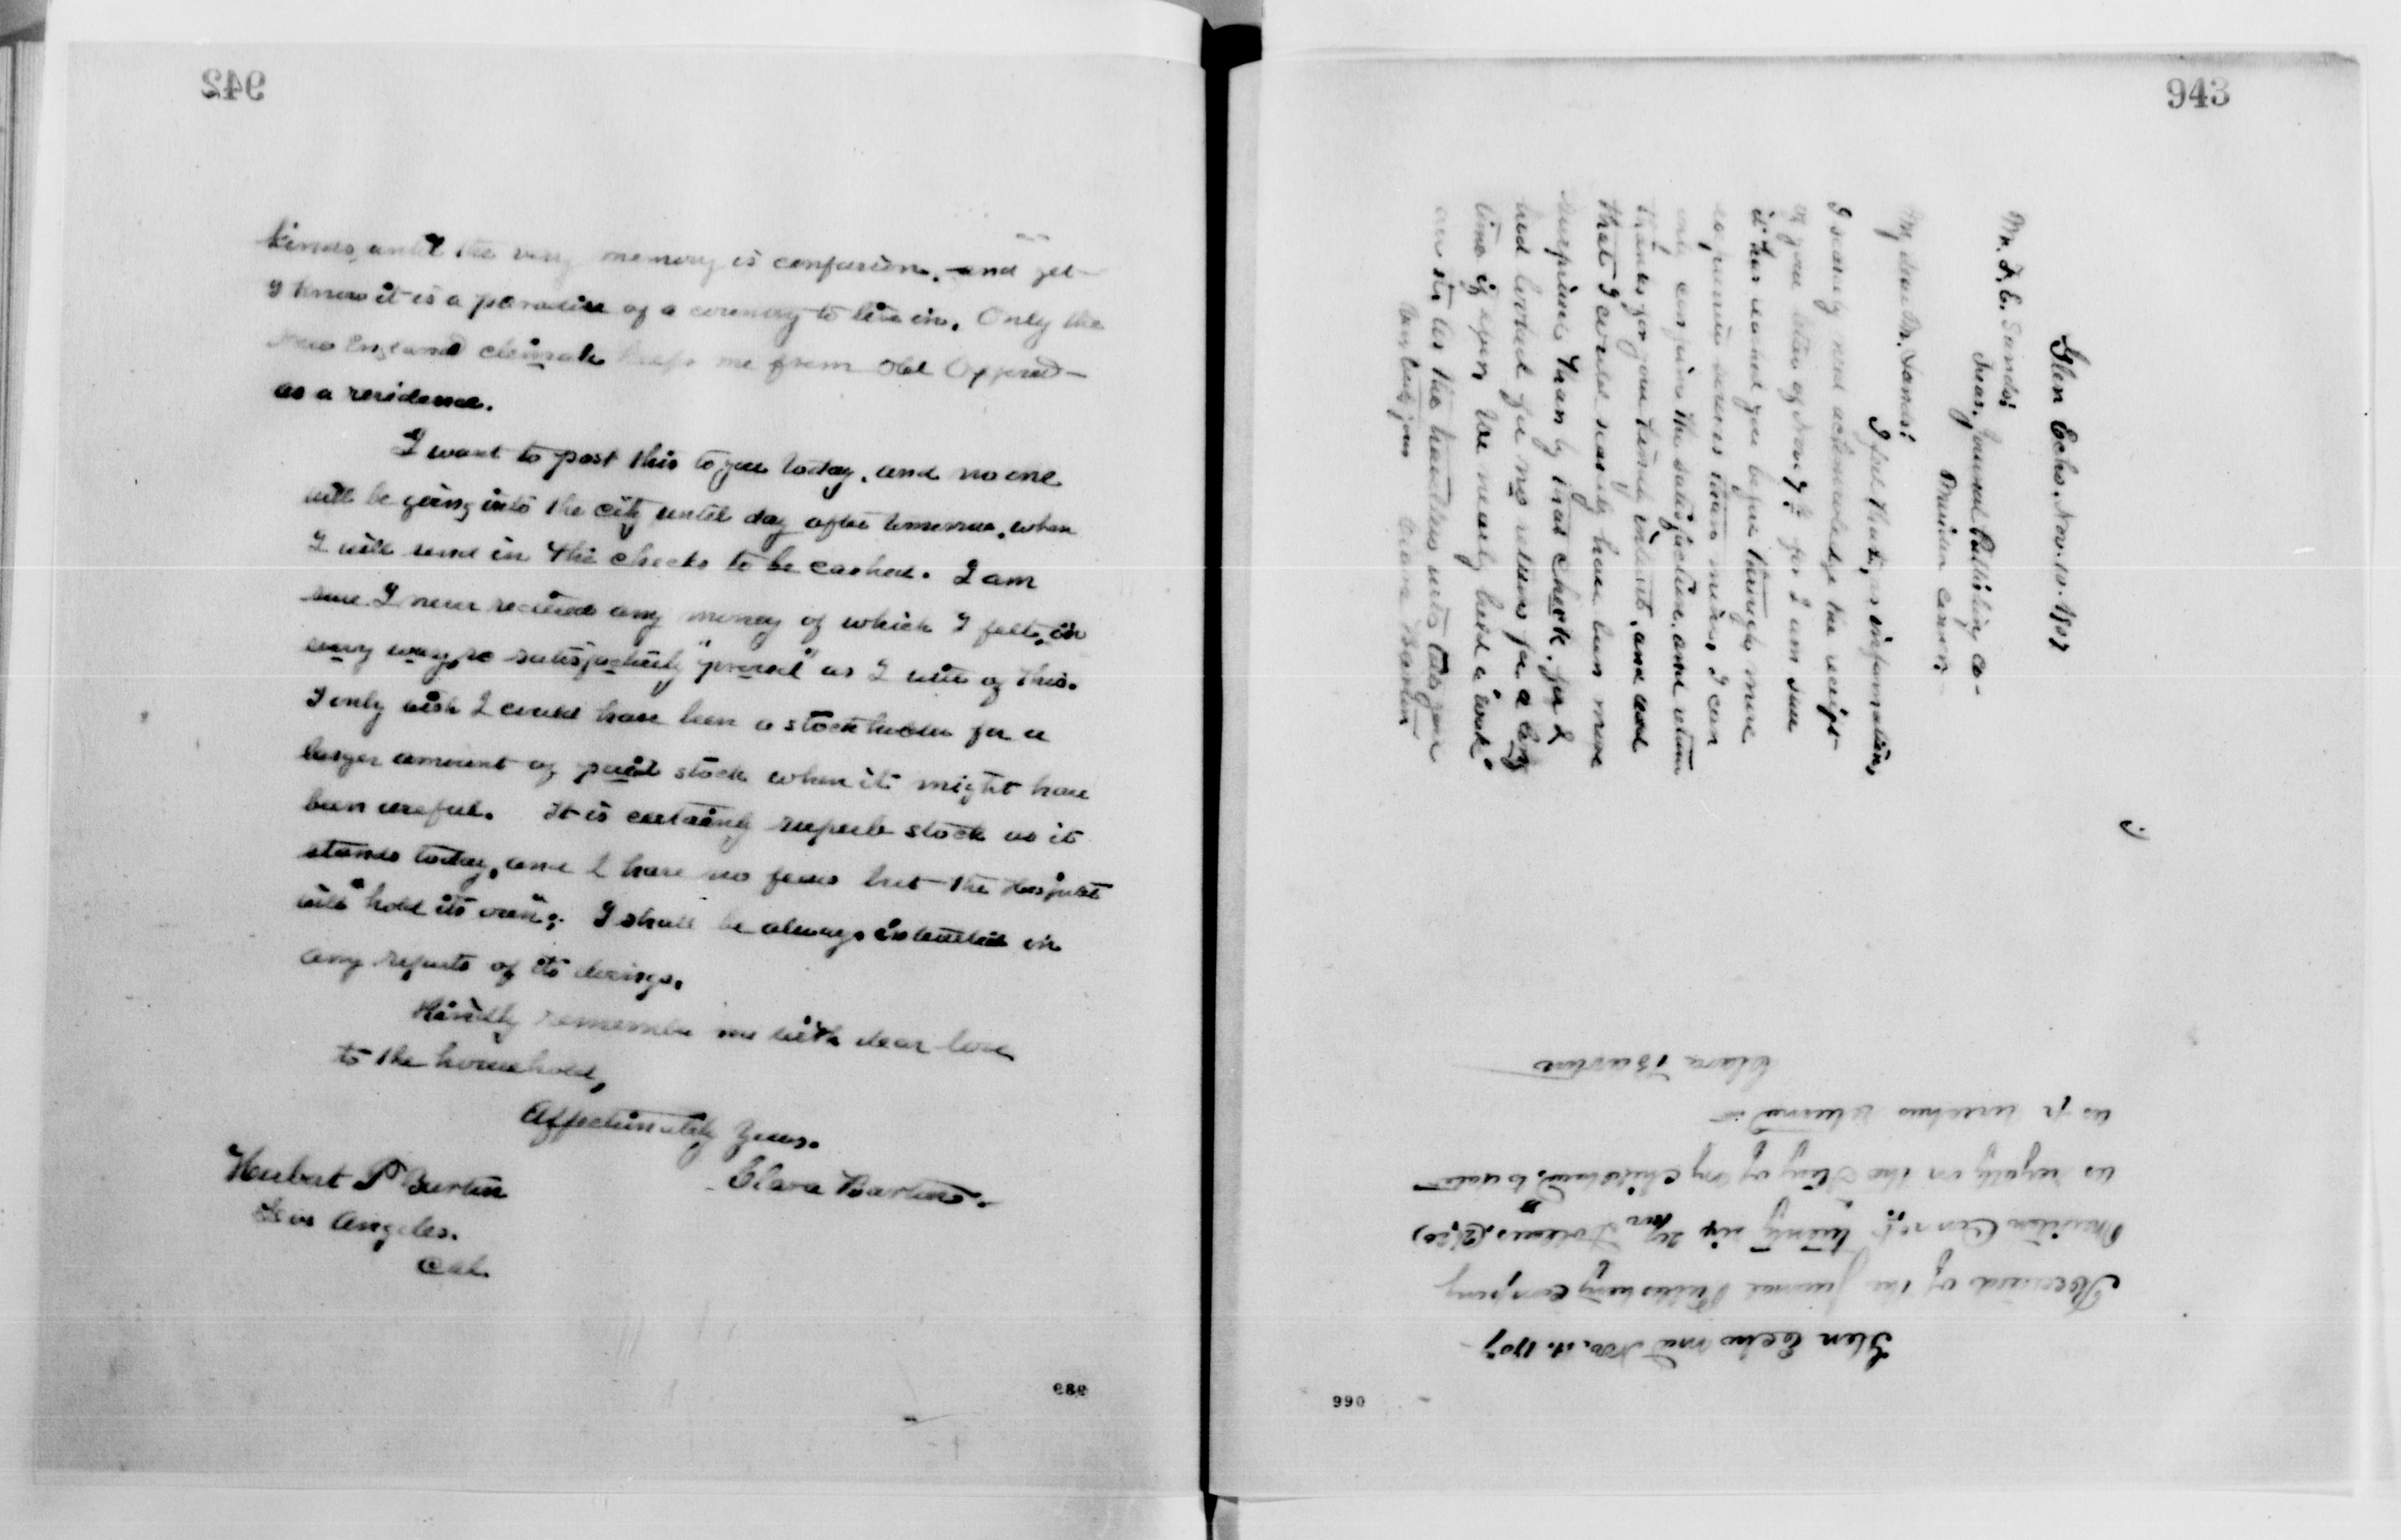 942
kinds, until the very memory is confusion. and yet
I know it is a paradise of a country to live in. Only the
New England climate keeps me from old Oxford
as a residence.
I want to post this to you today, and no one
will be going into the city until day after tomorrow, when
I will send in the checks to be cashed. I am
sure I never received any money of which I felt, in
every way, so satisfactorily "proved" as I now of this.
I only wish I could have been a stockholder for a
larger amount of paid stock when it might have
been useful. It is certainly superb stock as it
stands today, and I have no fears but the Hospital
will "hold its own". I shall be always interested in
any reports of its doings.
Kindly remember me with dear love
to the household,
Affectionately yours.
Clara Barton.
Hubert P Barton
Los Angeles.
Cal.
989
943
Glen Echo. Nov. 10. 1907
Mr. F. E. Sands:
Treas. Journal Publishing Co-
Meriden Conn:
My dear Mr. Sands:
I feel that, as information,
I scarcely need acknowledge the receipt
of your letter of Nov 7th for I am sure
it has reached you before through more
sources than mine, I can
only the satisfaction, and return
thanks for your kindly interest, and add
that I could scarcely have been more
surprised, than by that check, for I
had looked for no returns for a long
time if ever. We nearly held a "wake"
Clara Barton
Glen Echo Md Nov. 11. 1907
Received of the Journal Publishing Company
Meriden Conn: twenty six Dollars,
as royalty on the Story of my Childhood, to date
as per
Clara Barton
990